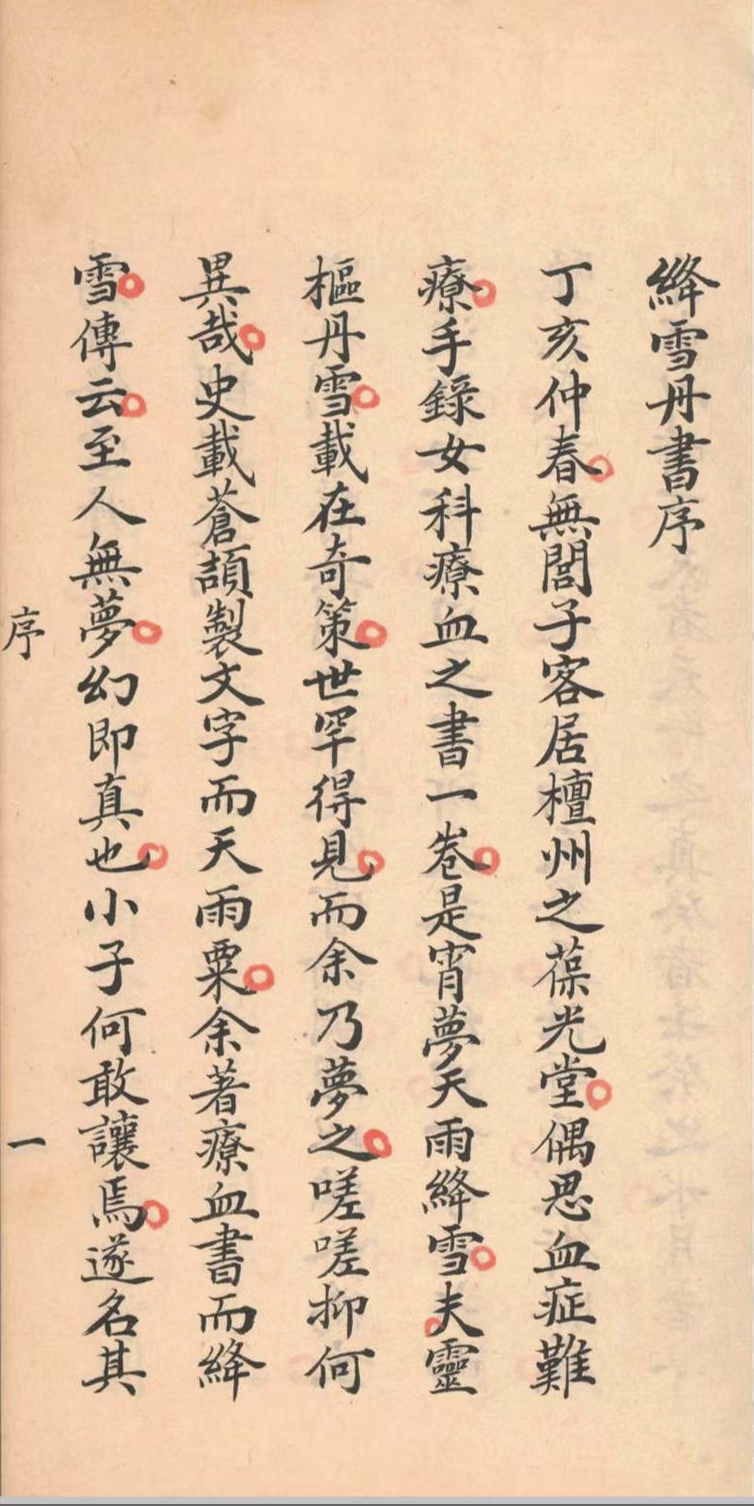 絳雪丹書序
丁亥仲春。無閭子客居檀州之葆光堂。偶思血症難
療。手錄女科療血之書一卷。是宵夢天雨絳雪。夫靈
樞丹雪。載在奇策。世罕得見。而余乃夢之。嗟嗟抑何
異哉。史載蒼頡製文字而天雨粟。余著療血書而絳
雪。傳云。至人無夢。幻即真也。小子何敢讓焉。遂名其
序
一